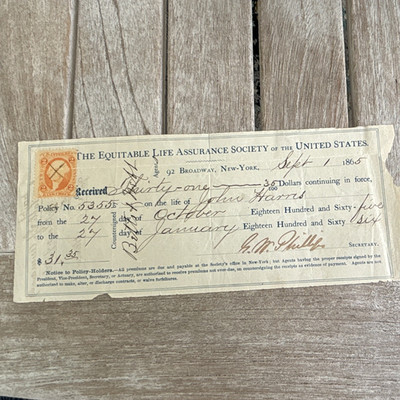 THE EQUITABLE LIFE ASSURANCE SOCIETY OF THE UNITED STATES.
92 BROADWAY, NEW-YORK, Sept 1 1865
Received Thirty-one 35/100 Dollars continuing in force,
Policy No. 53505 on the life of John Harris
from the 27 day of October Eighteen Hundred and Sixty-five
to the 27 day of January Eighteen Hundred and Sixty six
$31,35. G. W. Phillips
SECRETARY.
Notice to Policy-Holders.—All premiums are due and payable at the Society's office in New-York; but Agents having the proper receipts signed by the
President, Vice-President, Secretary, or Actuary, are authorized to receive premiums over-due, on countersigning the receipts as evidence of payment. Agents are not
authorized to make, alter, or discharge contracts, or waive forfeitures.
Countersigned
Agent